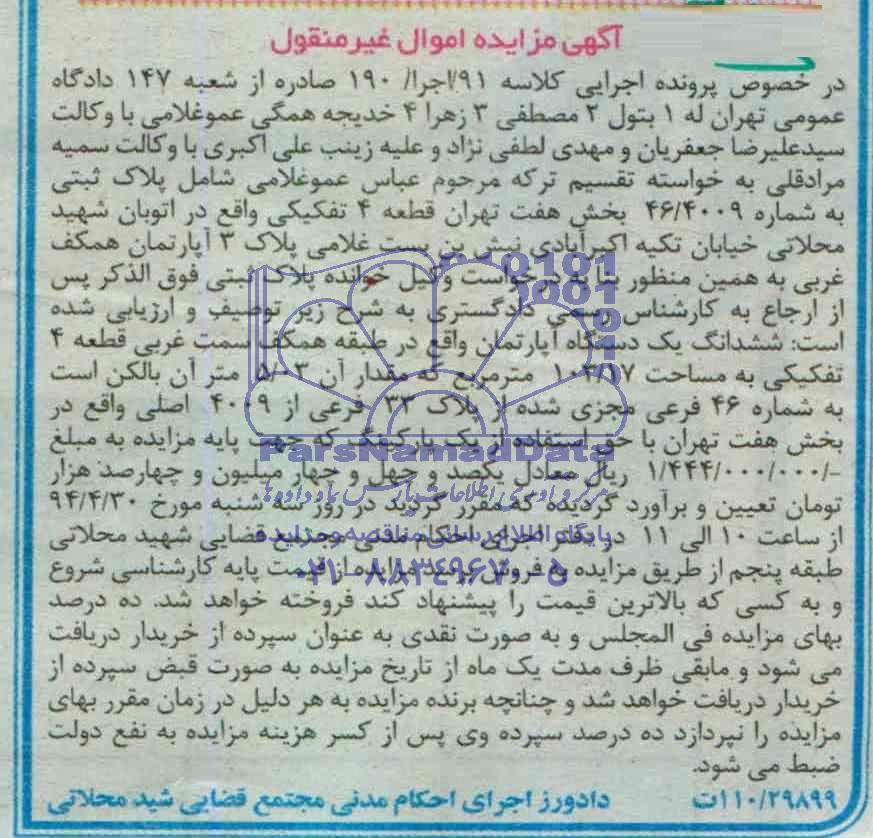 آگهی مزایده اموال غیرمنقول
در خصوص پرونده اجرایی کلاسه ۹۱/اجرا/ ۱۹۰ صادره از شعبه ۱۴۷ دادگاه
عمومی تهران له ۱ بتول ۲ مصطفی ۳ زهرا ۴ خدیجه همگی عموغلامی با وکالت
سیدعلیرضا جعفریان و مهدی لطفی نژاد و علیه زینب علی اکبری با وکالت سمیه
مرادقلی به خواسته تقسیم ترکه مرحوم عباس عموغلامی شامل پلاک ثبتی
به شماره ۴۶/۴۰۰۹ بخش هفت تهران قطعه ۴ تفکیکی واقع در اتوبان شهید
محلاتی خیابان تکیه اکبرآبادی نبش بن بست غلامی پلاک ۳ آپارتمان همکف
غربی به همین منظور بنا به درخواست وکیل خوانده پلاک ثبتی فوق الذکر پس
از ارجاع به کارشناس رسمی دادگستری به شرح زیر توصیف و ارزیابی شده
است: ششدانگ یک دستگاه آپارتمان واقع در طبقه همکف سمت غربی قطعه ۴
تفکیکی به مساحت ۱۰۴/۱۷ مترمربع که مقدار آن ۵/۰۳ متر آن بالکن است
به شماره ۴۶ فرعی مجزی شده از پلاک ۳۳ فرعی از ۴۰۰۹ اصلی واقع در
بخش هفت تهران با حق استفاده از یک پارکینگ که جهت پایه مزایده به مبلغ
۱/۴۴۴/۰۰۰/۰۰۰/- ریال معادل یکصد و چهل و چهار میلیون و چهارصد هزار
تومان تعیین و برآورد گردیده که مقرر گردید در روز سه شنبه مورخ ۹۴/۴/۳۰
از ساعت ۱۰ الی ۱۱ در دفتر اجرای احکام مدنی مجتمع قضایی شهید محلاتی
طبقه پنجم از طریق مزایده به فروش برسد مزایده از قیمت پایه کارشناسی شروع
و به کسی که بالاترین قیمت را پیشنهاد کند فروخته خواهد شد. ده درصد
بهای مزایده فی المجلس و به صورت نقدی به عنوان سپرده از خریدار دریافت
می شود و مابقی ظرف مدت یک ماه از تاریخ مزایده به صورت قبض سپرده از
خریدار دریافت خواهد شد و چنانچه برنده مزایده به هر دلیل در زمان مقرر بهای
مزایده را نپردازد ده درصد سپرده وی پس از کسر هزینه مزایده به نفع دولت
ضبط می شود.
۱۱۰/۲۹۸۹۹ت دادورز اجرای احکام مدنی مجتمع قضایی شید محلاتی
ParsNamadData
پایگاه اطلاع رسانی مناقصه و مزایده
۰۲۱-۸۸۳۴۹۶۷۰-۵